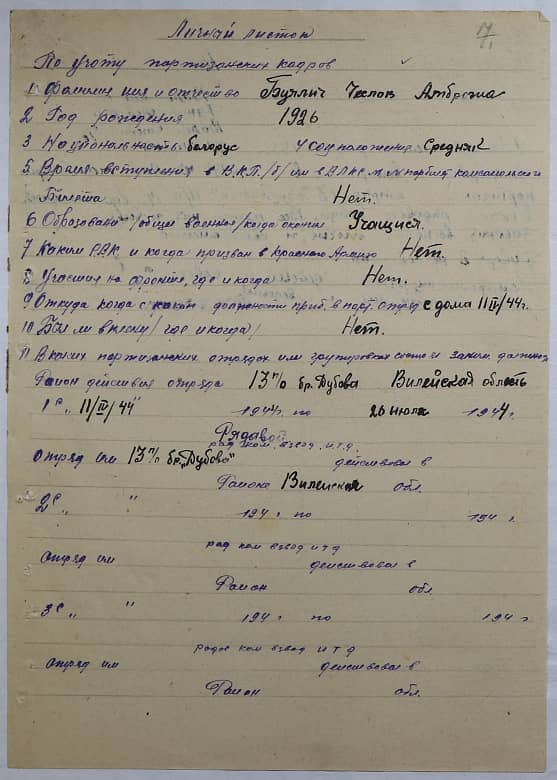 Личный листок
По учоту партизанских кадров
1 Фамилия имя и отчество Буллич Чеслав Амброзиа
2 Год рождения 1926
3 Националькость белорус 4 Соц положение Средняк
5 Время вступления в В.К.П./б/ или в ВЛКСМ № партбил комсомольского
Билета Нет.
6 Образована /общее военное/ когда окончи Учащися
7 Каким РВК и когда призван в Красного Армию Нет.
8 Участия на фронте, где и когда Нет.
9 Откуда когда с какой должности приб. в парт. отряд с дома 11 IV/44 г.
10 Был ли в плену/ где и когда/ Нет.
11 В каких партизанских отрядах или групировках состоял заким должност
Район действия отряда 13 п/о бр. Дубова Вилейская область
1 С „ 11/IV/44" 1944 г. по 26 июля 1944
Рядавой
ряд ком. взвод и.т.д.
Отряд им 13 п/о бр. „Дубово" действовал в
Района Вилейская обл.
2 С „ " 194 г по 194 г.
ряд ком взвод и т д
Отряд им действовал в
Район обл.
3 С „ " 194 г по 194 г.
рядов ком взвод и т д
Отряд им действовал в
Район обл.